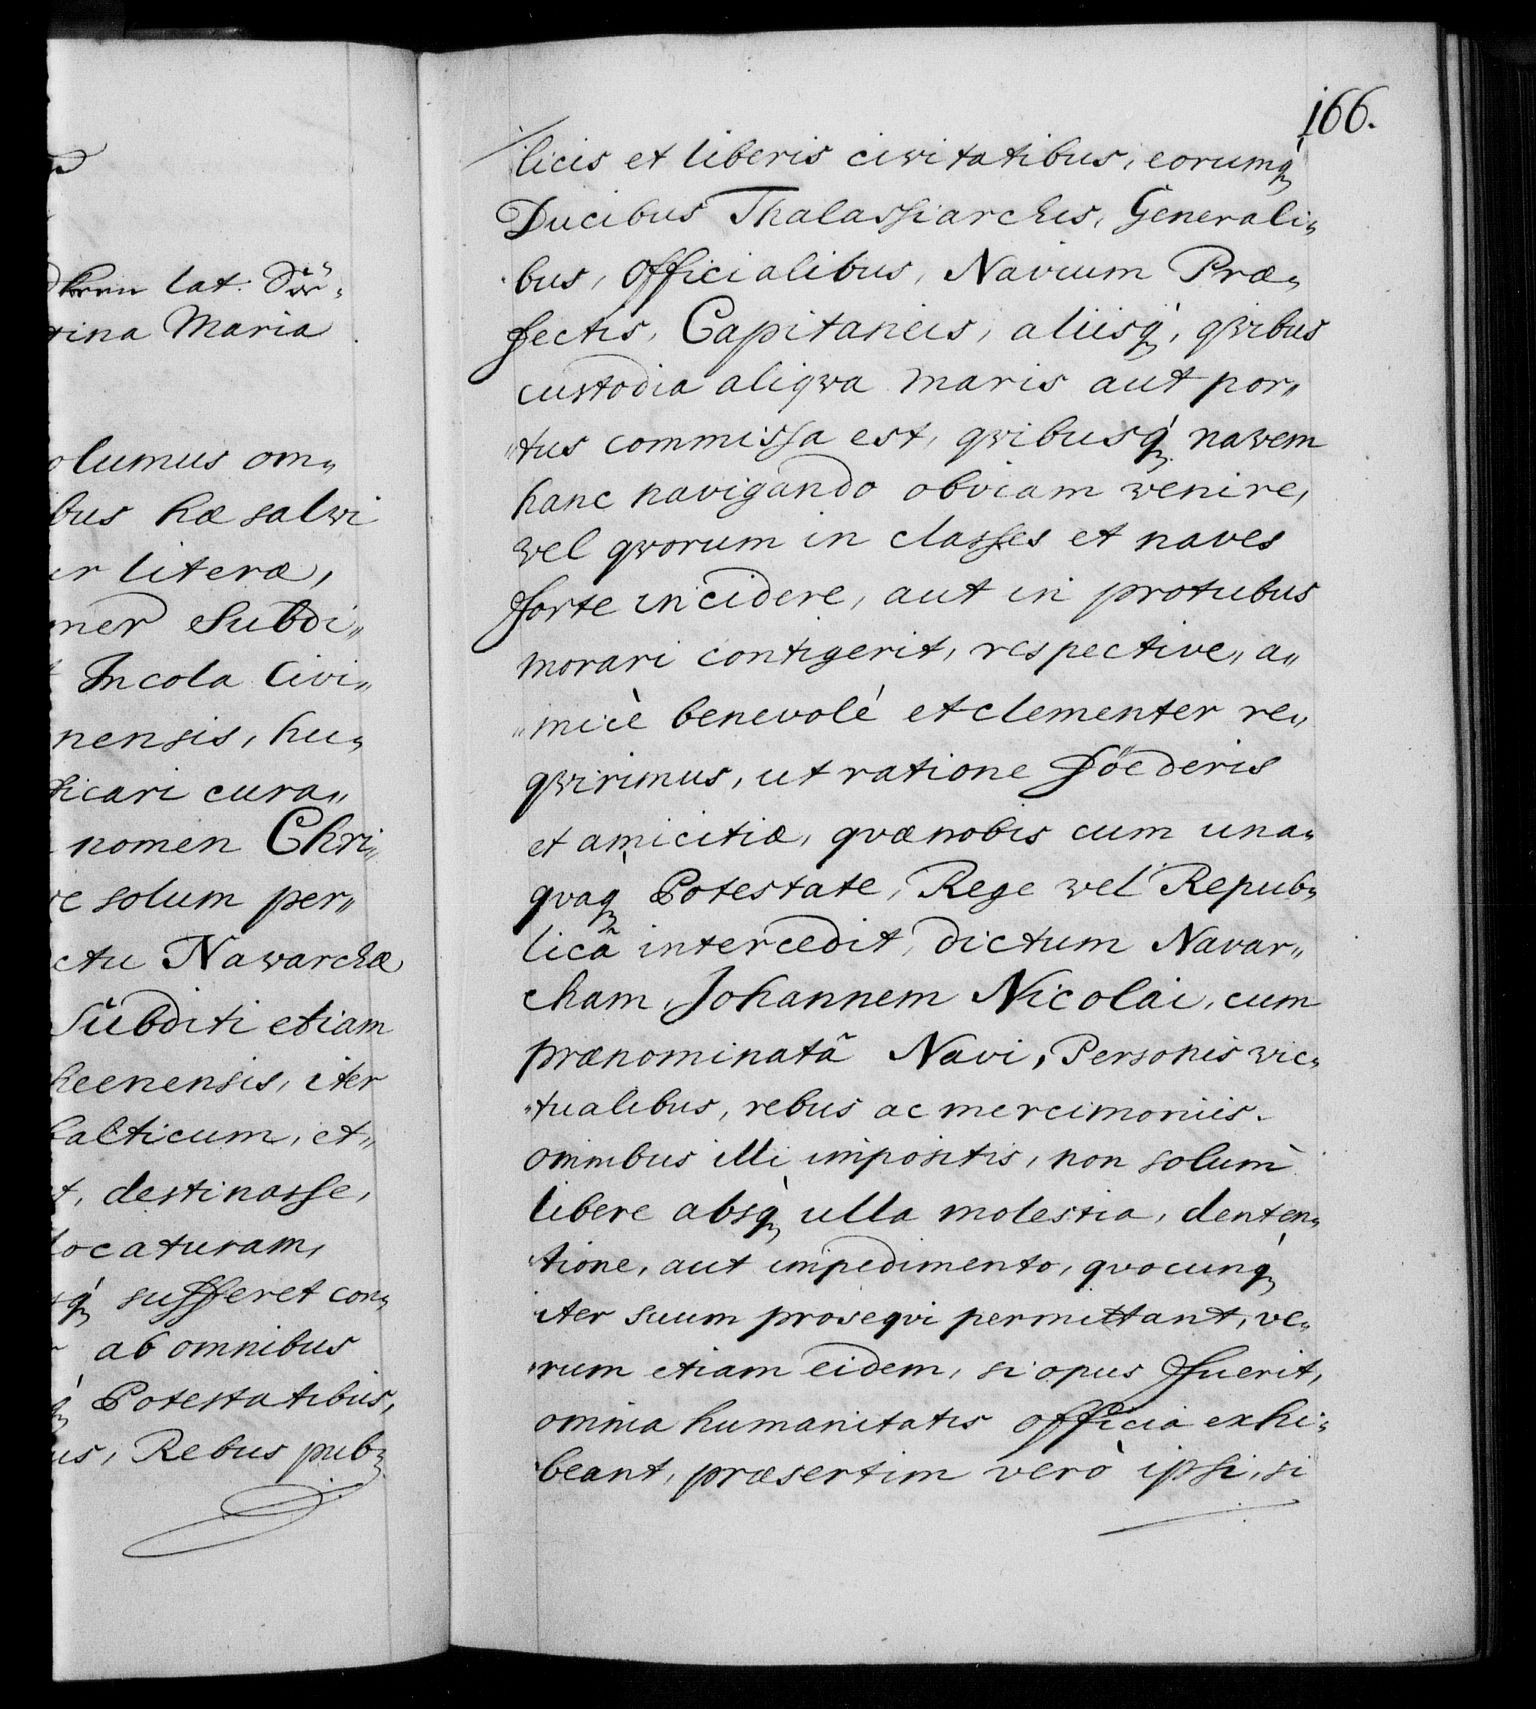 lat: Sö¨
tina Maria
olumus om„
bus hæ salvi
er literæ,
ner Subdi„
Incola Civi„
nensis, hu„
ficari cura„
nomen Chri„
re solum per„
ctu Nawarchæ
Subditi etiam
heenensis, iter
balticum, et„
t, destinasse,
locaturam,
q́ sufferet con„
ab omnibus
q́ Potestatibus,
us, Rebus pub„
166.
licis et liberis civitatibus, eorumq́
Ducibus Thalassiarchis, Generali„
bus, Officialibus, Navium Præ„
fectis, Capitaneis, aliisq́, qvibus
custodia aliqva maris aut por„
„tus commissa est, qvibusq́ navem
hanc navigando obviam venire,
vel qvorum in classes et naves
forte incidere, aut in protubus
morari contigerit, respective, a„
„micè benevolé et clementer re„
qvirimus, ut ratione Föederis
et amicitiæ, qvæ nobis cum una„
qvaq́ Potestate, Rege vel Repub„
licâ intercedit, dictum Navar„
cham, Johannem Nicolai, cum
prænominatâ Navi, Personis vic„
„tualibus, rebus ac mercimoniis.
omnibus illi impositis, non solum
libere absq́ ulla molestia, denten„
tione, aut impedimento, qvocunq́
iter suum proseqvi permittant, ve„
„rum etiam eidem, si opus fuerit,
omnia humanitatis officia exhi„
beant, præsertim verò ipsi, si